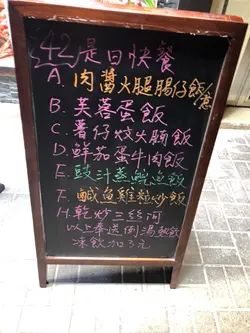 42是日快餐
A. 肉醬火腿腸仔飯
B. 芙蓉蛋飯
C. 薯仔炆火腩飯
D. 鮮茄蛋牛肉飯
E. 豉汁蒸鯇魚飯
F. 鹹魚雞粒炒飯
H. 乾炒三絲河
以上奉送例湯或飲
凍飲加3元